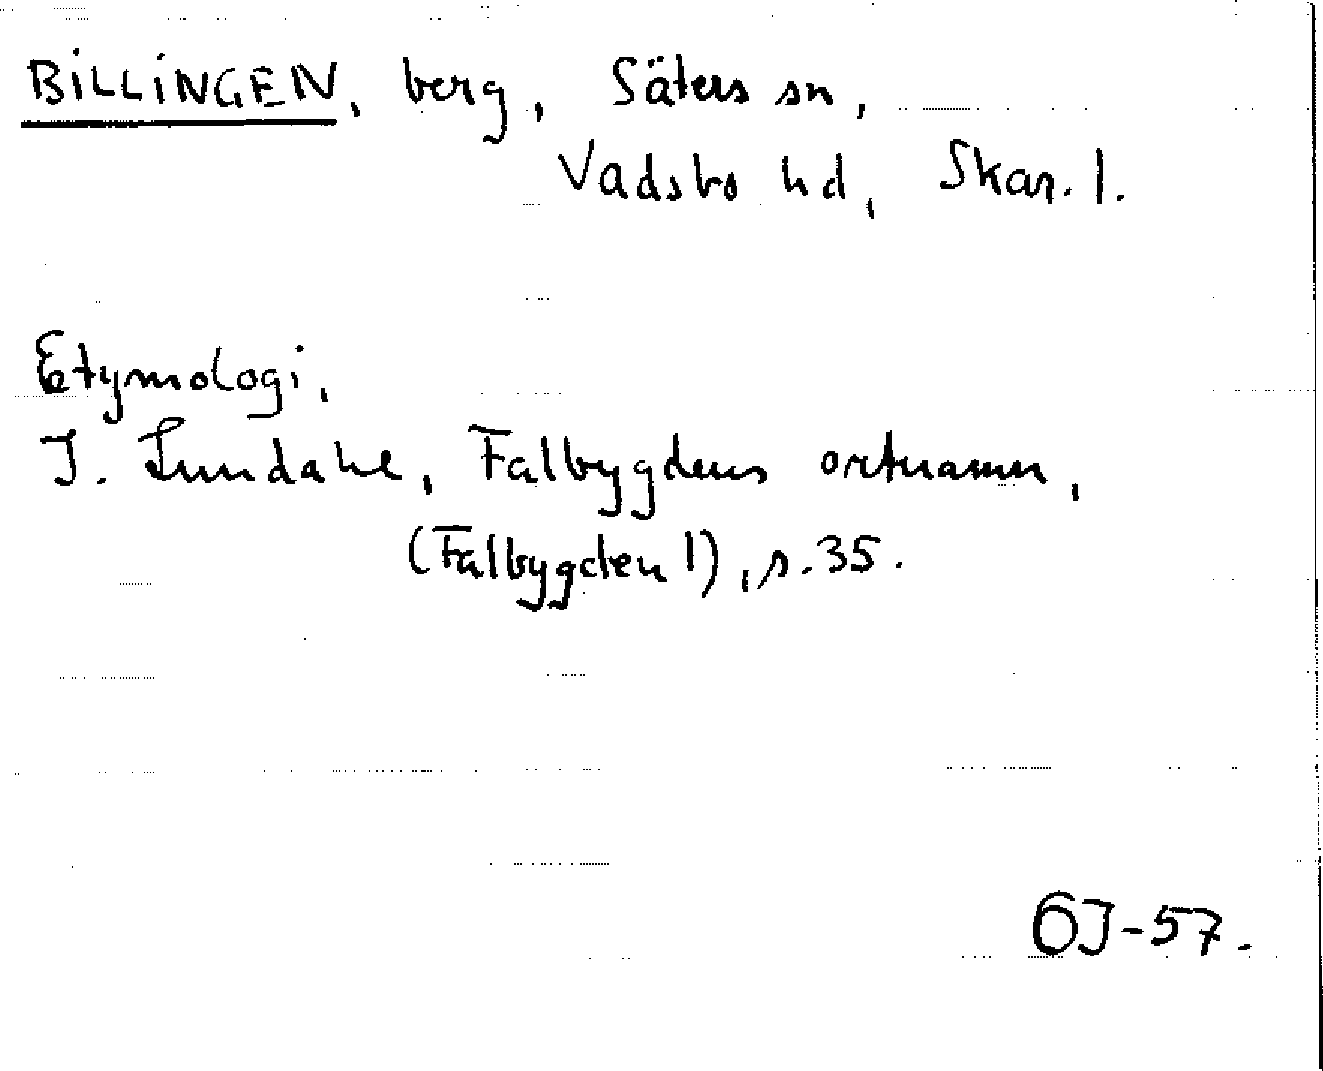 BILLINGEN, berg, Säters sn,
Vadsbo hd, Skar. l.
Etymologi,
I. Lundahl, Falbygdens ortnamn,
(Falbygden 1), s. 35.
ÖJ-57.